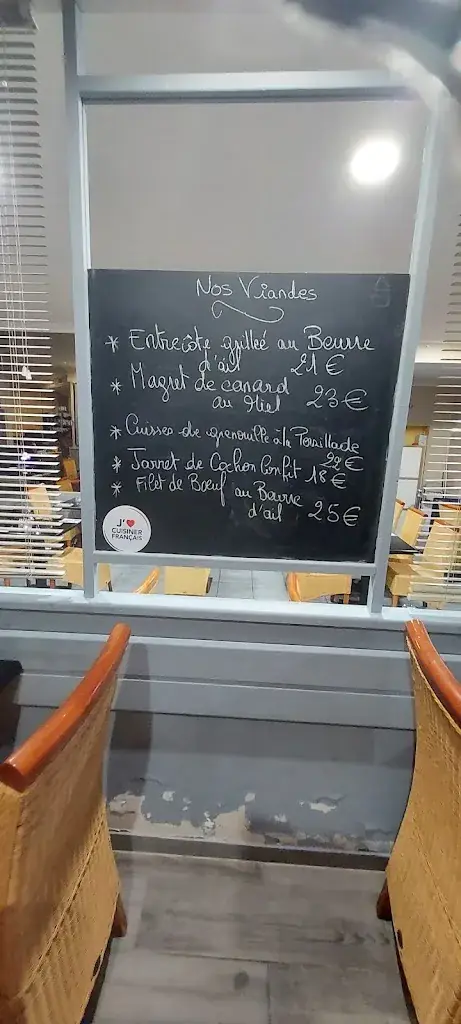 Nos Viandes
* Entrecôte grillée au Beurre
d'ail 21 €
* Magret de canard
au Miel 23 €
* Cuisses de grenouille à la Persillade
22 €
* Jarret de Cochon Confit 18 €
* Filet de Bœuf au Beurre
d'ail 25 €
J'❤
CUISINER
FRANÇAIS